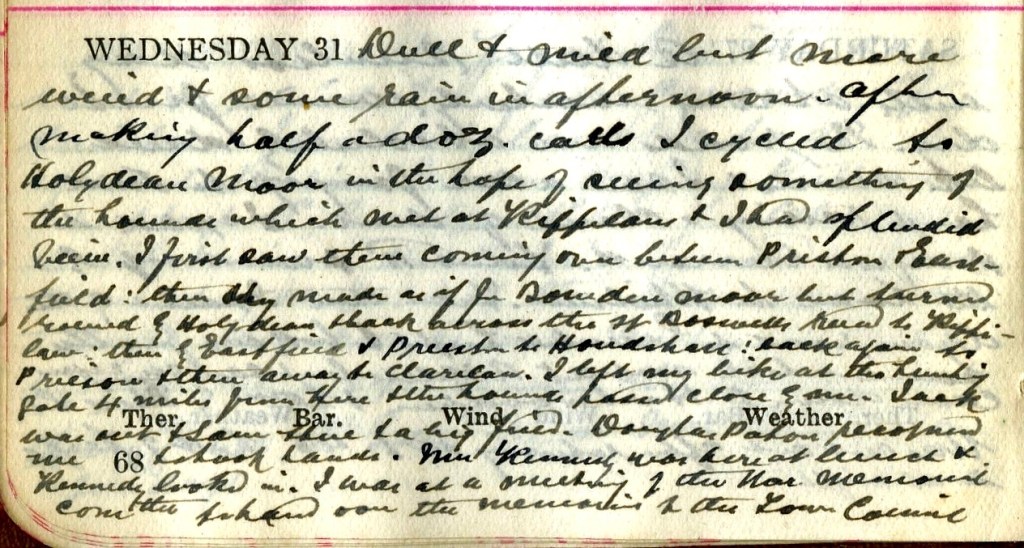 WEDNESDAY 31 Dull & mild but more
wind & some rain in afternoon. After
making half a doz. calls I cycled to
Holydean Moor in the hope of seeing something of
the hounds which met at Rifflaw & I had a splendid
view. I first saw them coming over between Prieston & East-
field: then they made as if for Bowden moor but turned
round by Holydean & back across the St Boswells road to
law: then by Eastfield & Prieston to: back again to
Prieston & then away to Clarilaw. I left my bike at the hunting
gate 4 miles from here & the hounds passed close by me. Jack
Ther. Bar. Wind Weather
was out & I saw & a big field. Douglas Paton recognised
me 68 & shook hands. Mrs Kennedy was here at lunch &
Kennedy looked in. I was at a meeting of the War Memorial
Comttee to hand over the memorial to the Town Council